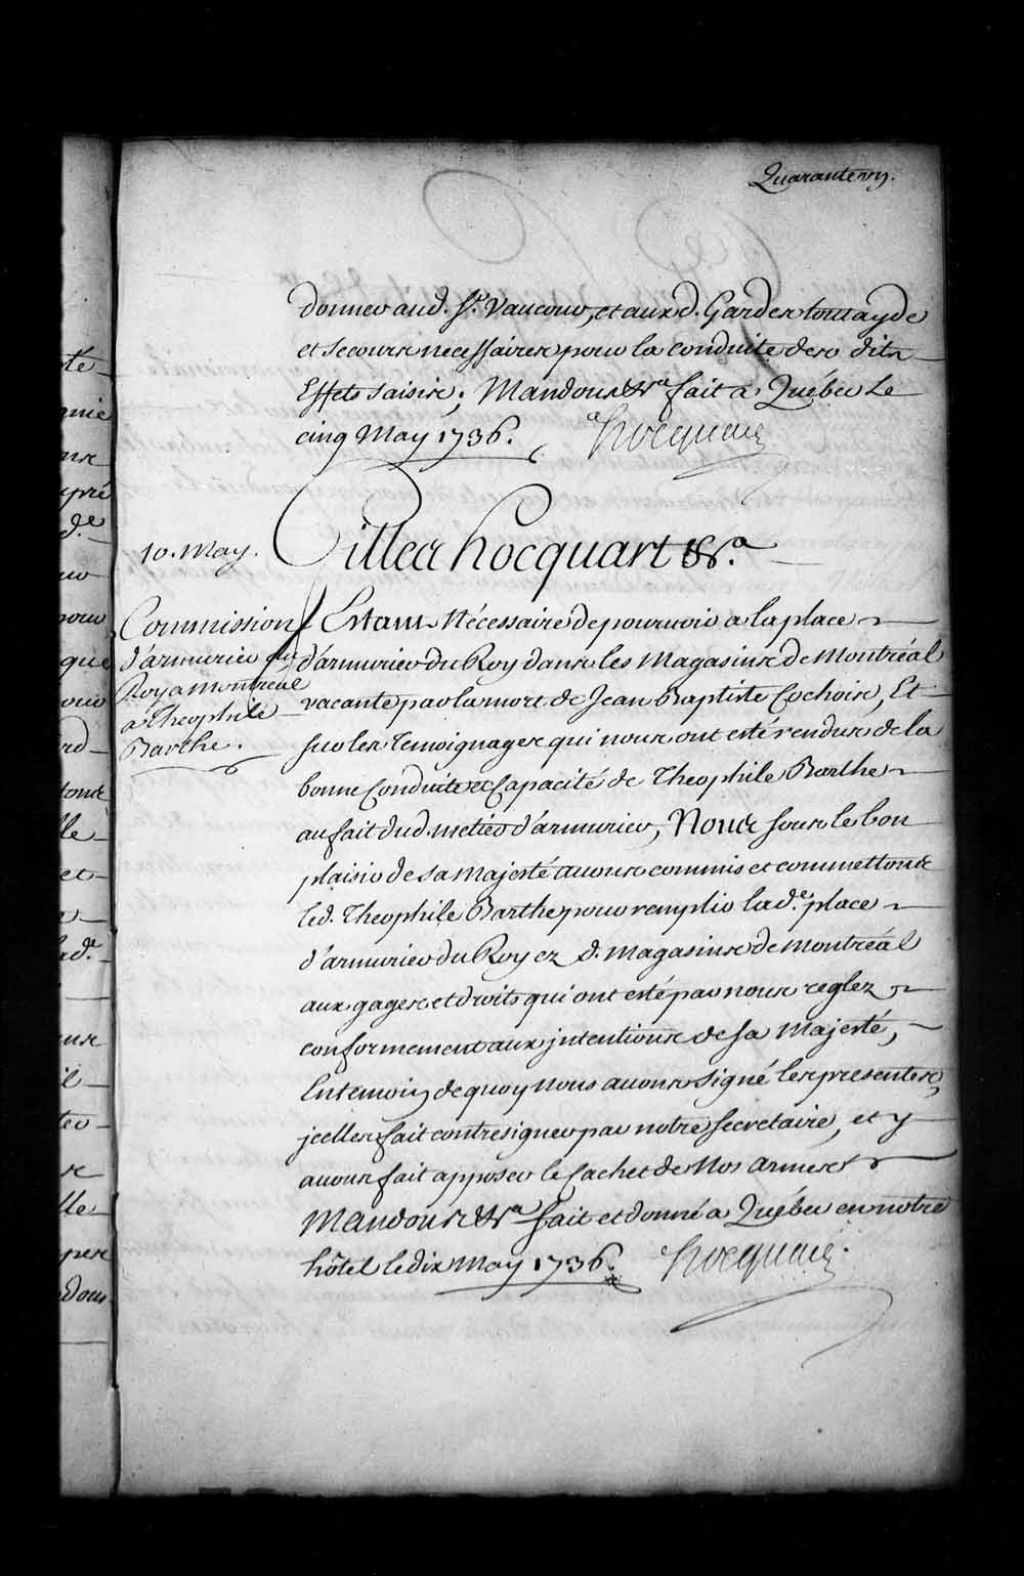 Quarante un.
donner aud. Sr. Vaucour, et aux d. Gardes tout ayde
et Secours necessaires pour la conduite des dits
Effets Saisis; Mandons &ca fait a Québec Le
cinq May 1736. Hocquart
10. May. Gilles hocquart &ca.
Commission
d'armurier du
Roy a montreal
a Theophile
Barthe.
Estant Nécessaire de pourvoir a la place
d'armurier du Roy dans les Magasins de Montréal
vacante par la mort de Jean Baptiste Cochois, Et
sur les Temoignages qui nous ont esté rendus de la
bonne Conduite et Capacité de Theophile Barthe
au fait dud. metier d'armurier, Nous sous le bon
plaisir de sa Majesté avons commis et commettons
led. Theophile Barthe pour remplir lade. place
d'armurier du Roy ez d. magasins de Montréal
aux gages et droits qui ont esté par nous reglez
conformement aux jntentions de sa Majesté,
En temoin de quoy nous avons signé les presentes,
jcelles fait contresigner par notre secretaire, et y
avons fait apposer le Cachet de Nos armes
Mandons &ca fait et donné a Québec en notre
hôtel le dix May 1736. Hocquart.
te
gnie
pré
de
pour
que
rd
tous
lle
et
lade.
il
lle